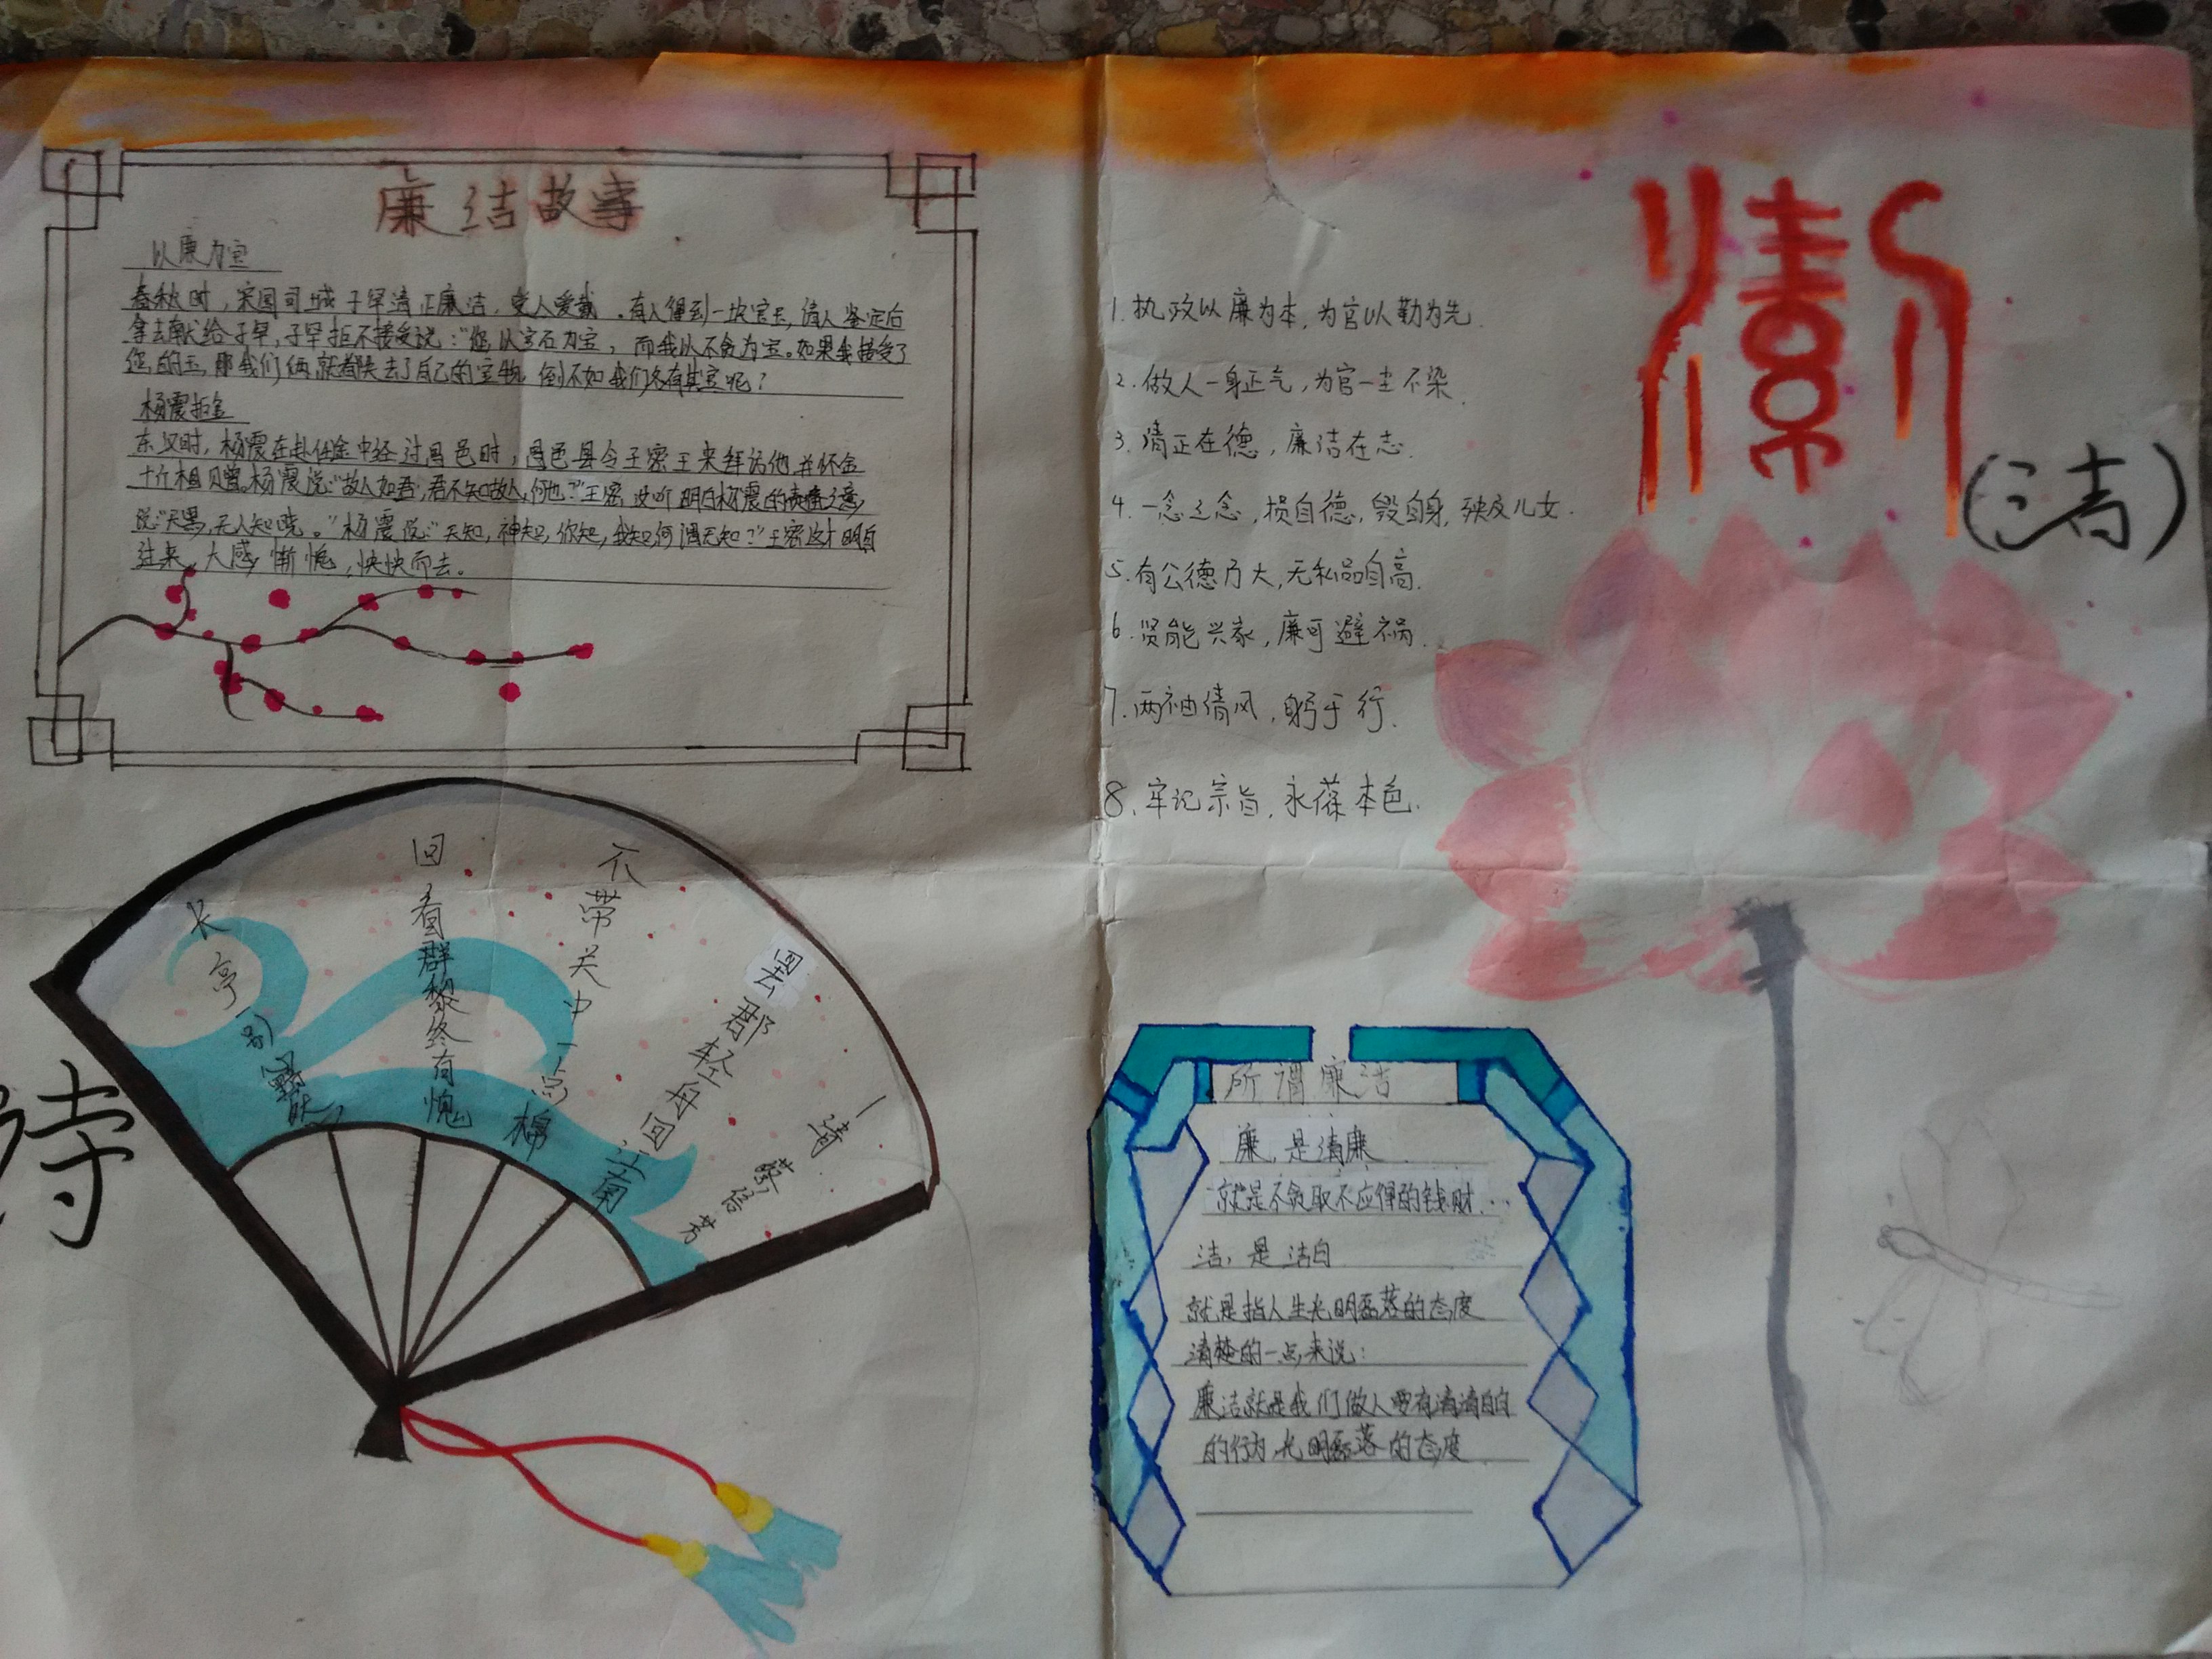 廉洁故事
以廉为宝
春秋时，宋国司城子罕清正廉洁，受人爱戴。有人得到一块宝玉，请人鉴定后
拿去献给子罕，子罕拒不接受说："您以宝石为宝，而我以不贪为宝。如果我接受了
您的玉，那我们俩就都失去了自己的宝物，倒不如我们各有其宝呢？
杨震拒金
东汉时，杨震在赴任途中经过昌邑时，昌邑县令王密王来拜访他，并怀金
十斤相赠。杨震说："故人如吾，君不知故人，何也？"王密没听明白杨震的责备之意，
说："天黑，无人知晓。"杨震说："天知，神知，你知，我知，何谓无知？"王密这才明白
过来，大感惭愧，怏怏而去。
(三清)
1.执政以廉为本，为官以勤为先.
2.做人一身正气，为官一尘不染.
3.清正在德，廉洁在志.
4.一念之念，损自德，毁自身，殃及儿女.
5.有公德乃大，无私品自高.
6.贤能兴家，廉可避祸.
7.两袖清风，躬于行.
8.牢记宗旨，永葆本色.
罢郡轻舟回江南
不带关中一点棉
回看群黎终有愧
长亭一别
一清 蔡信芳
待
所谓廉洁
廉，是清廉
就是不贪取不应得的钱财...
洁，是洁白
就是指人生光明磊落的态度
清楚的一点来说：
廉洁就是我们做人要有清清白白
的行为，光明磊落的态度